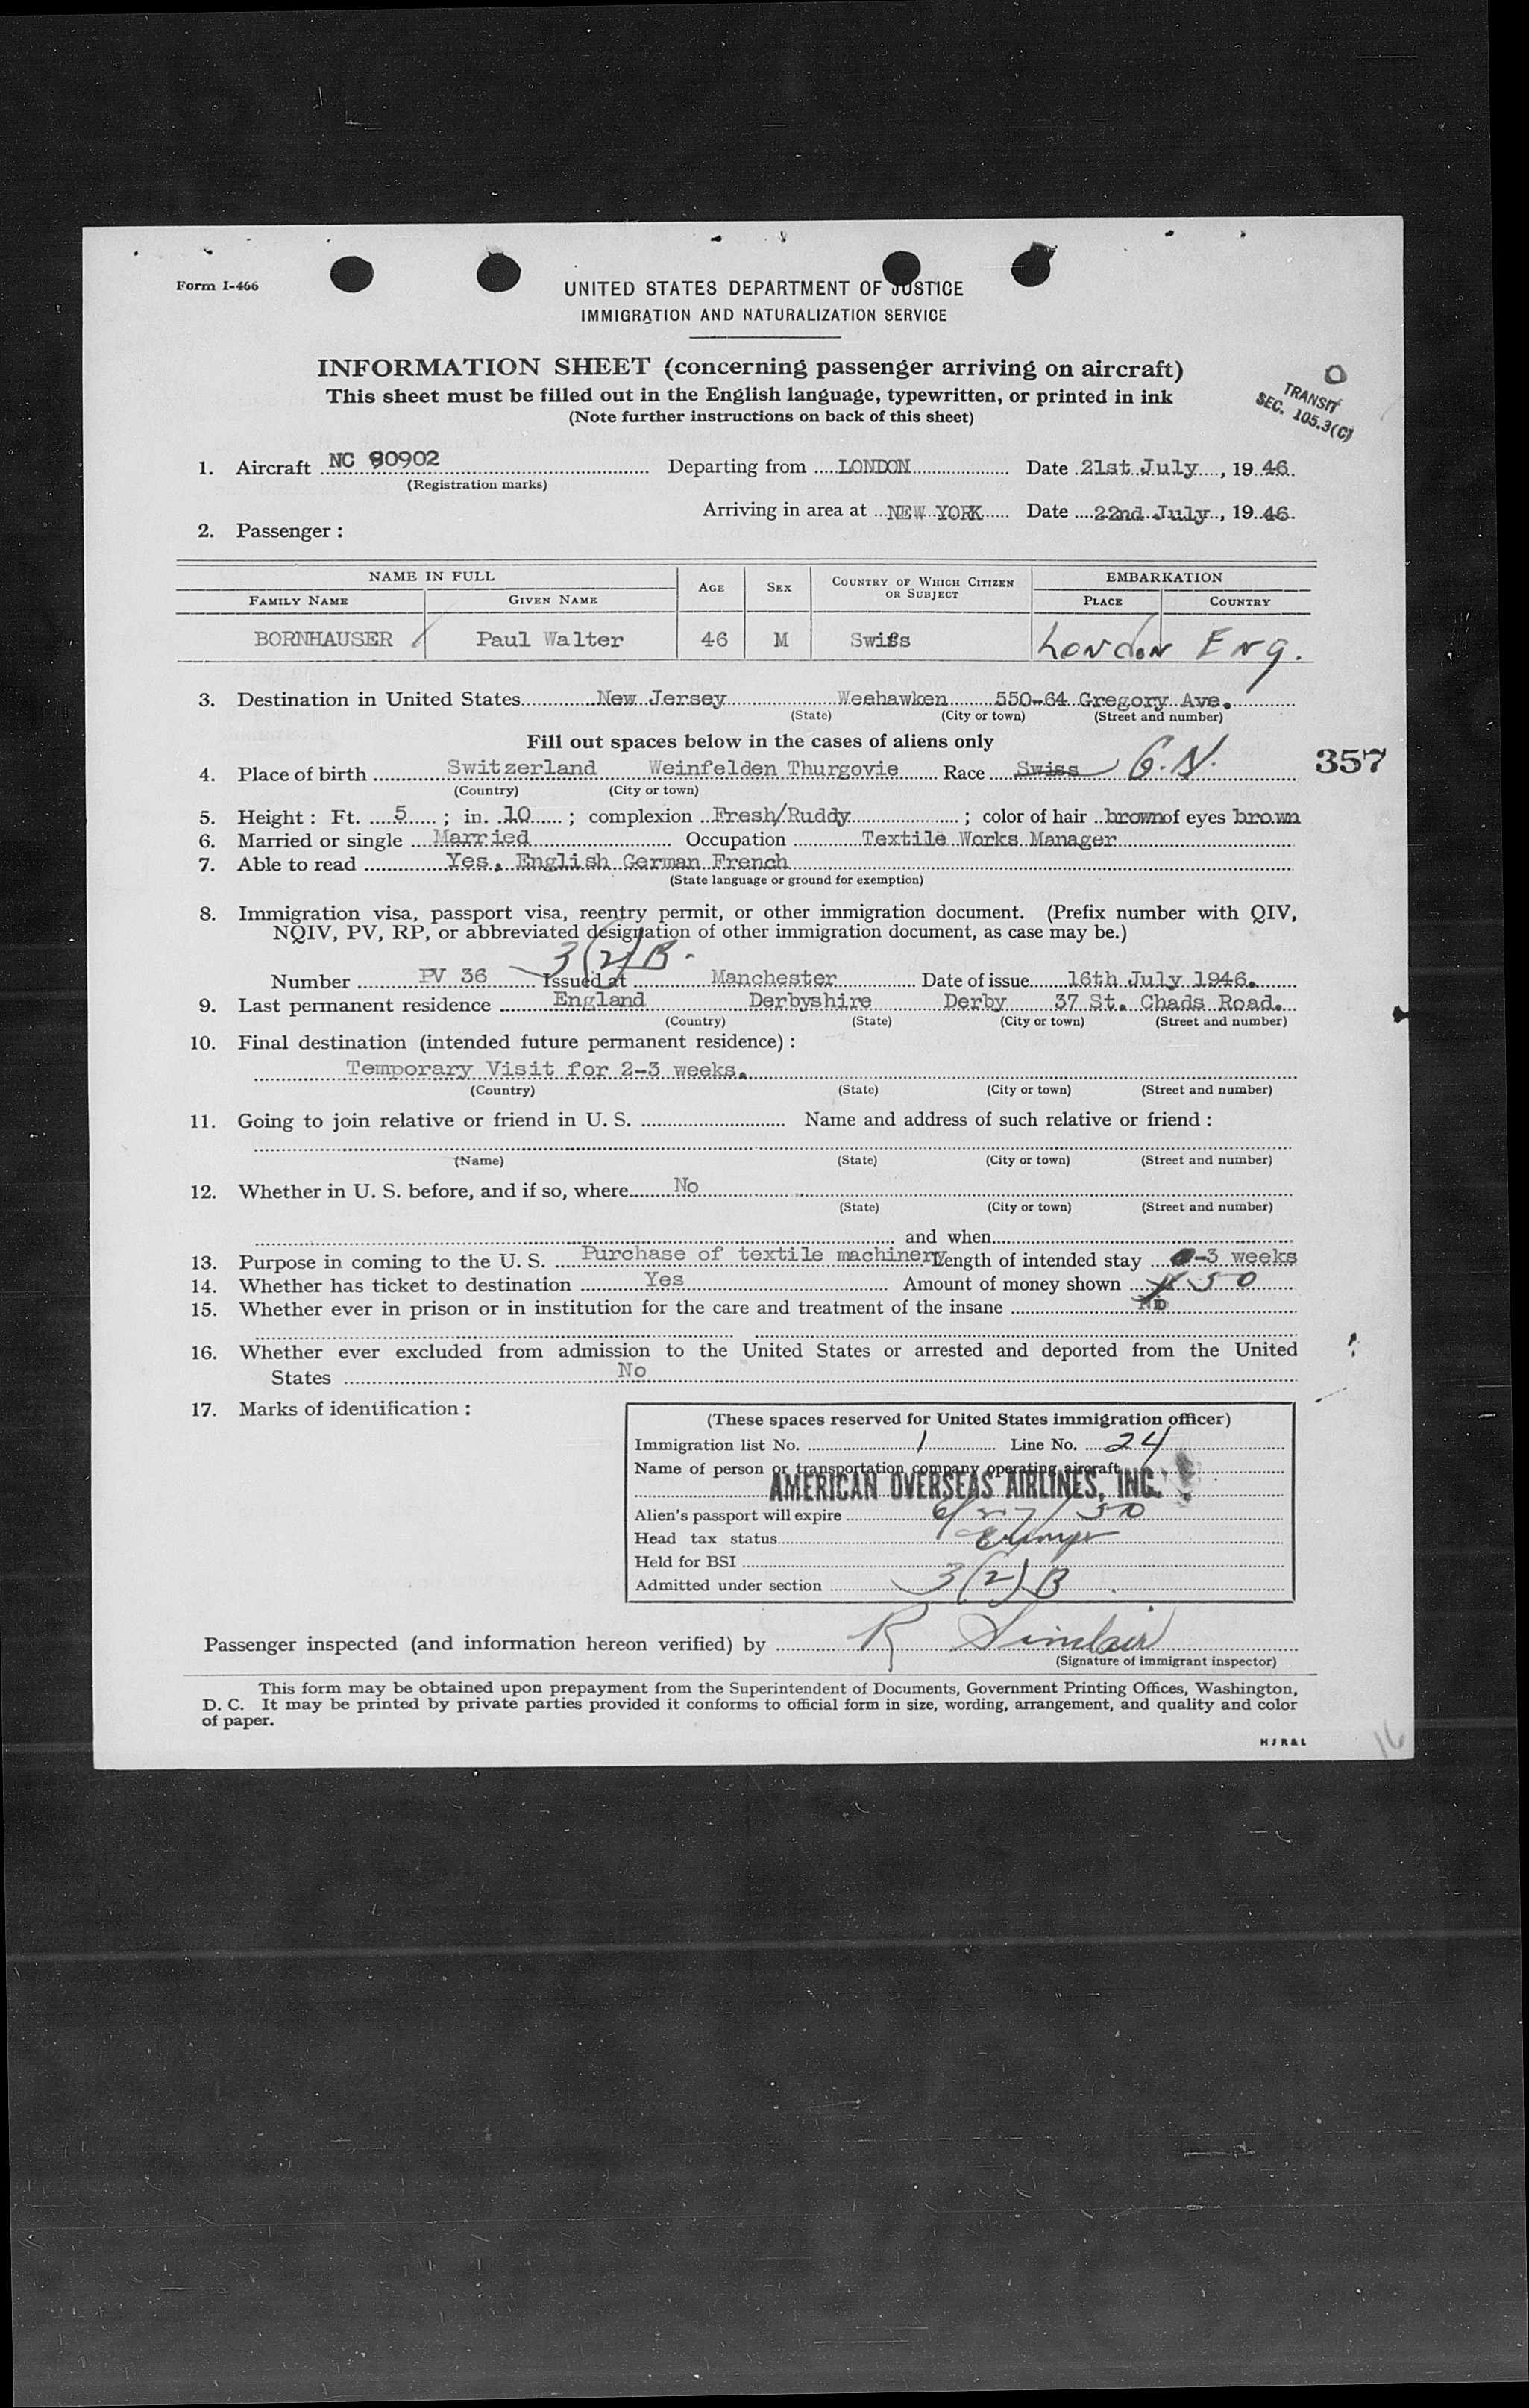 Form I-466
UNITED STATES DEPARTMENT OF JUSTICE
IMMIGRATION AND NATURALIZATION SERVICE
INFORMATION SHEET (concerning passenger arriving on aircraft)
This sheet must be filled out in the English language, typewritten, or printed in ink
(Note further instructions on back of this sheet)
TRANSIT
SEC. 105.3(C)
1. Aircraft NC 90902 Departing from LONDON Date 21st July, 1946.
(Registration marks)
Arriving in area at NEW YORK Date 22nd July, 1946.
2. Passenger:
NAME IN FULL AGE SEX COUNTRY OF WHICH CITIZEN OR SUBJECT EMBARKATION
FAMILY NAME GIVEN NAME PLACE COUNTRY
BORNHAUSER Paul Walter 46 M Swiss London Eng.
3. Destination in United States New Jersey Weehawken 550-64 Gregory Ave.
(State) (City or town) (Street and number)
Fill out spaces below in the cases of aliens only
4. Place of birth Switzerland Weinfelden Thurgovie Race Swiss G.N. 357
(Country) (City or town)
5. Height: Ft. 5; in. 10; complexion Fresh/Ruddy; color of hair brown of eyes brown
6. Married or single Married Occupation Textile Works Manager
7. Able to read Yes, English German French
(State language or ground for exemption)
8. Immigration visa, passport visa, reentry permit, or other immigration document. (Prefix number with QIV,
NQIV, PV, RP, or abbreviated designation of other immigration document, as case may be.)
3(2)B.
Number PV 36 Issued at Manchester Date of issue 16th July 1946.
9. Last permanent residence England Derbyshire Derby 37 St. Chads Road.
(Country) (State) (City or town) (Street and number)
10. Final destination (intended future permanent residence):
Temporary Visit for 2-3 weeks.
(Country) (State) (City or town) (Street and number)
11. Going to join relative or friend in U. S. Name and address of such relative or friend:
(Name) (State) (City or town) (Street and number)
12. Whether in U. S. before, and if so, where No
(State) (City or town) (Street and number)
and when
13. Purpose in coming to the U. S. Purchase of textile machinery Length of intended stay -3 weeks
14. Whether has ticket to destination Yes Amount of money shown 50
15. Whether ever in prison or in institution for the care and treatment of the insane No
16. Whether ever excluded from admission to the United States or arrested and deported from the United
States No
17. Marks of identification:
(These spaces reserved for United States immigration officer)
Immigration list No. 1 Line No. 24
Name of person or transportation company operating aircraft
AMERICAN OVERSEAS AIRLINES, INC.
Alien's passport will expire 6/27/50
Head tax status Exempt
Held for BSI
Admitted under section 3(2)B
Passenger inspected (and information hereon verified) by R Sinclair
(Signature of immigrant inspector)
This form may be obtained upon prepayment from the Superintendent of Documents, Government Printing Offices, Washington,
D. C. It may be printed by private parties provided it conforms to official form in size, wording, arrangement, and quality and color
of paper.
H J R & L
16